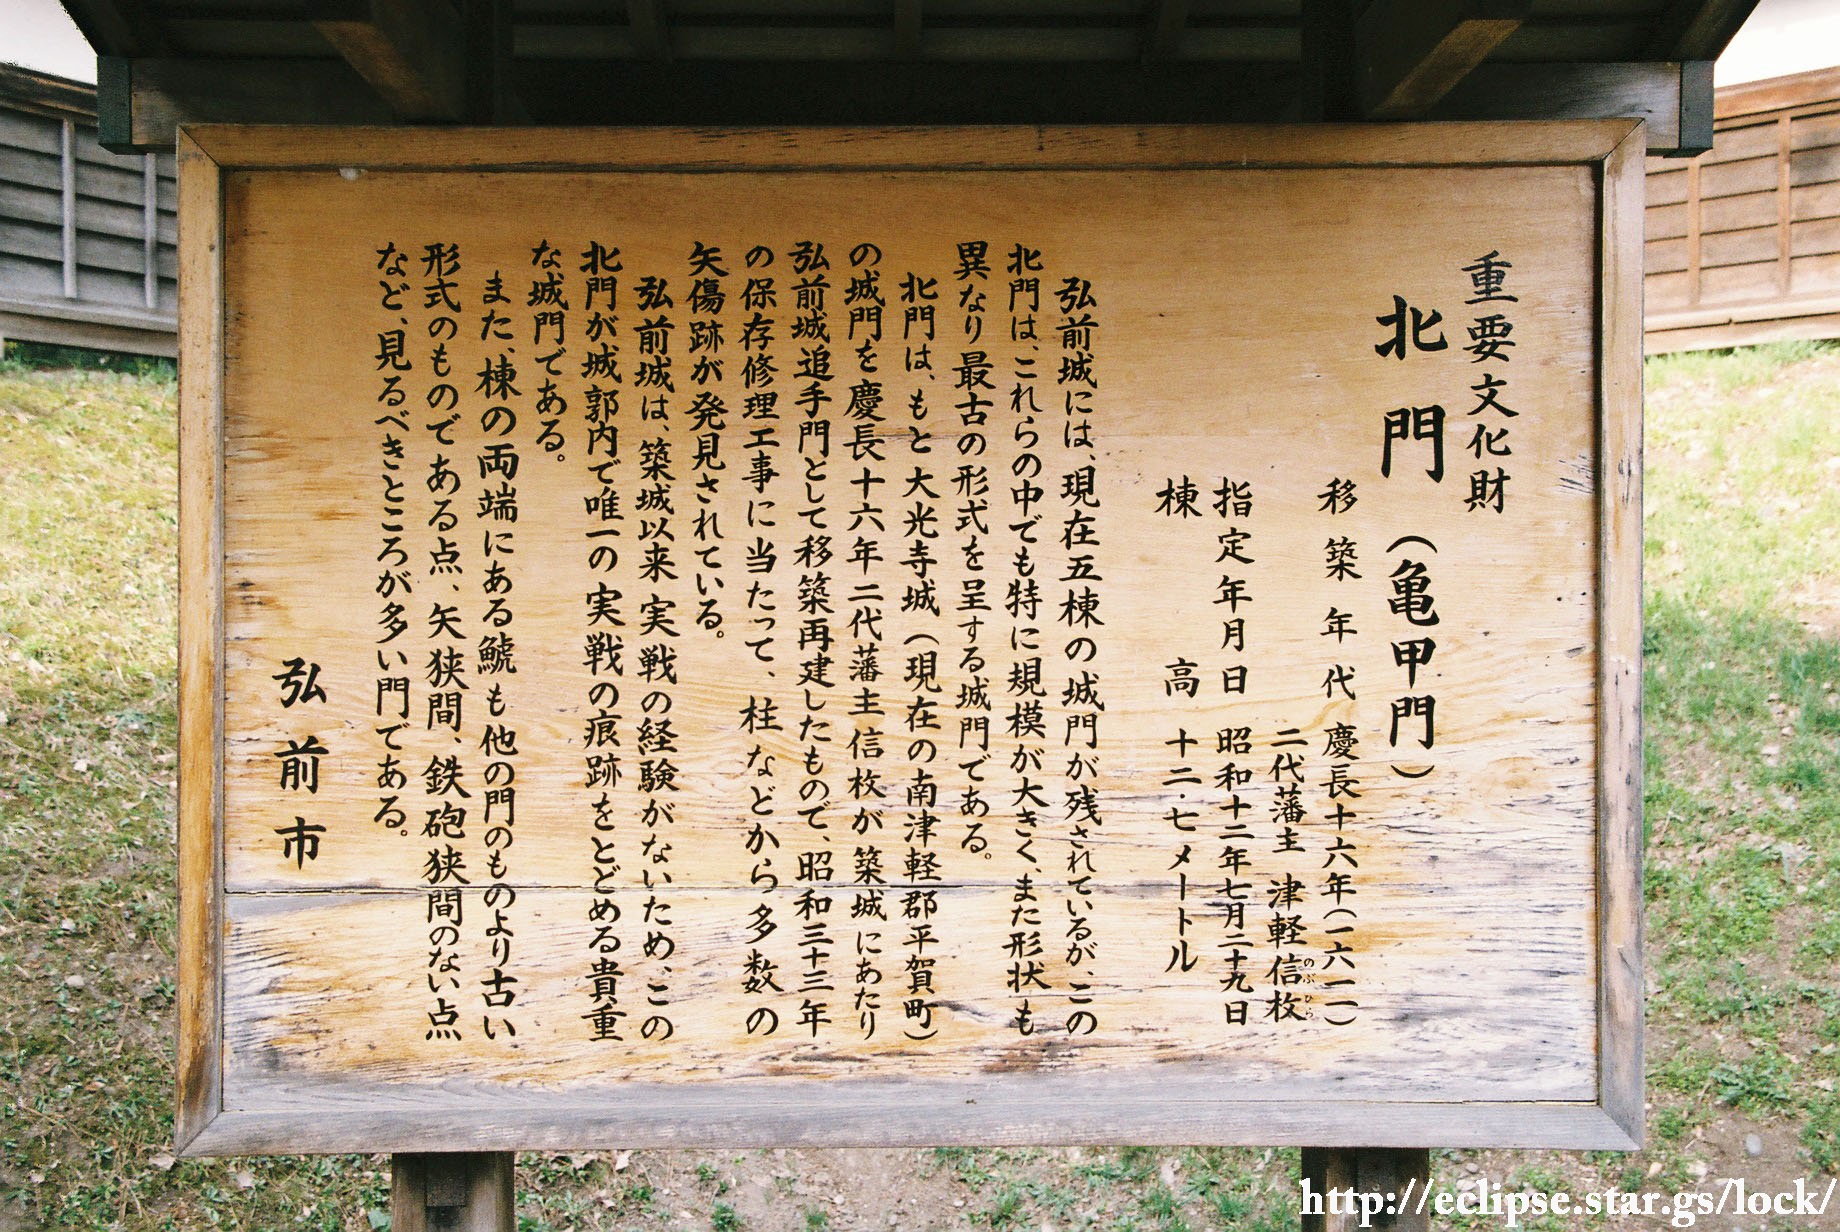 重要文化財
北門（亀甲門）
移築年代 慶長十六年（一六一一）
二代藩主 津軽信枚
のぶひら
指定年月日 昭和十二年七月二十九日
棟高 十二・七メートル
弘前城には、現在五棟の城門が残されているが、この
北門は、これらの中でも特に規模が大きく、また形状も
異なり最古の形式を呈する城門である。
北門は、もと大光寺城（現在の南津軽郡平賀町）
の城門を慶長十六年二代藩主信枚が築城にあたり
弘前城追手門として移築再建したもので、昭和三十三年
の保存修理工事に当たって、柱などから多数の
矢傷跡が発見されている。
弘前城は、築城以来実戦の経験がないため、この
北門が城郭内で唯一の実戦の痕跡をとどめる貴重
な城門である。
また、棟の両端にある鯱も他の門のものより古い
形式のものである点、矢狭間、鉄砲狭間のない点
など、見るべきところが多い門である。
弘前市
http://eclipse.star.gs/lock/